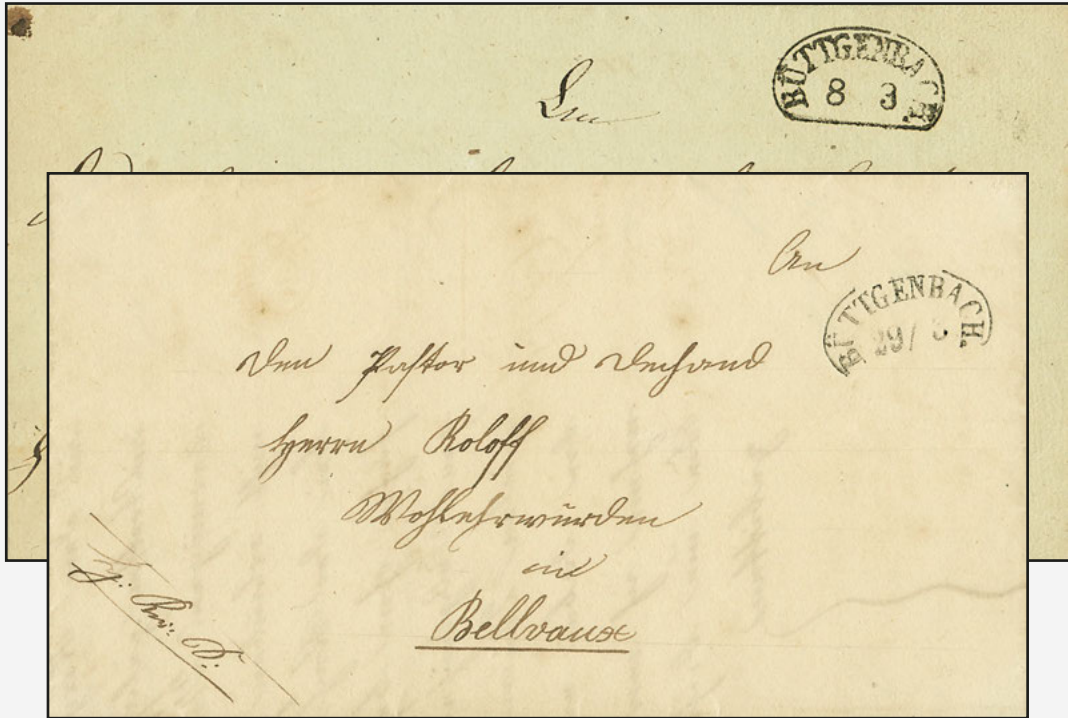 BÜTTGENBACH.
8 3
An
BÜTTGENBACH.
29/
den Pastor und Dechand
Herrn Roloff
Wohlehrwürden
in
Bellvaux